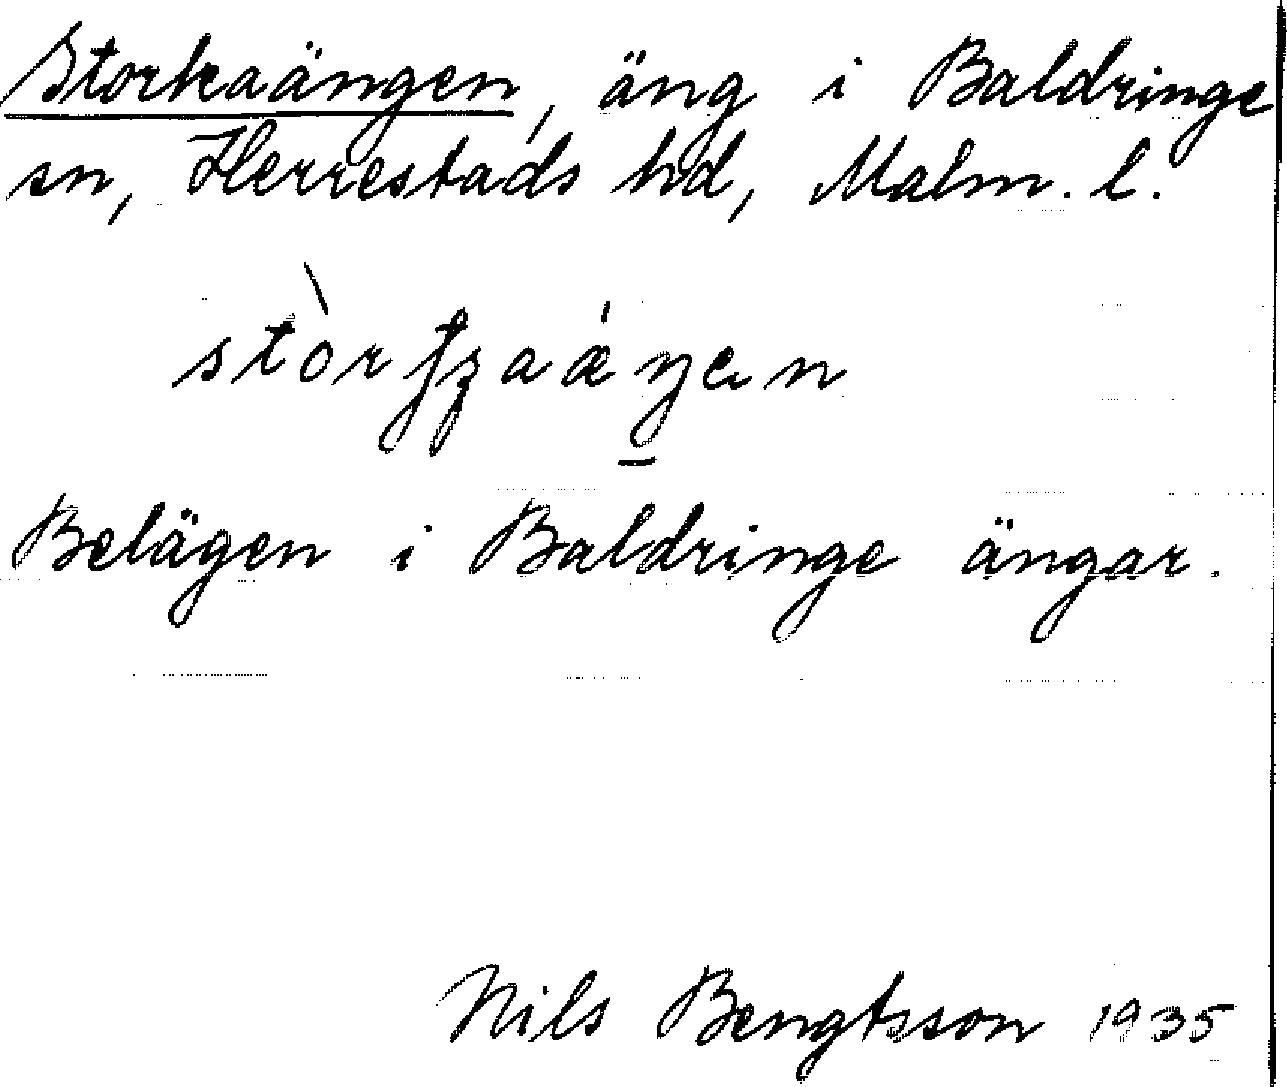 Storkaängen, äng i Baldringe
sn, Herrestads hd, Malm. l.
Belägen i Baldringe ängar.
Nils Bengtsson 1935